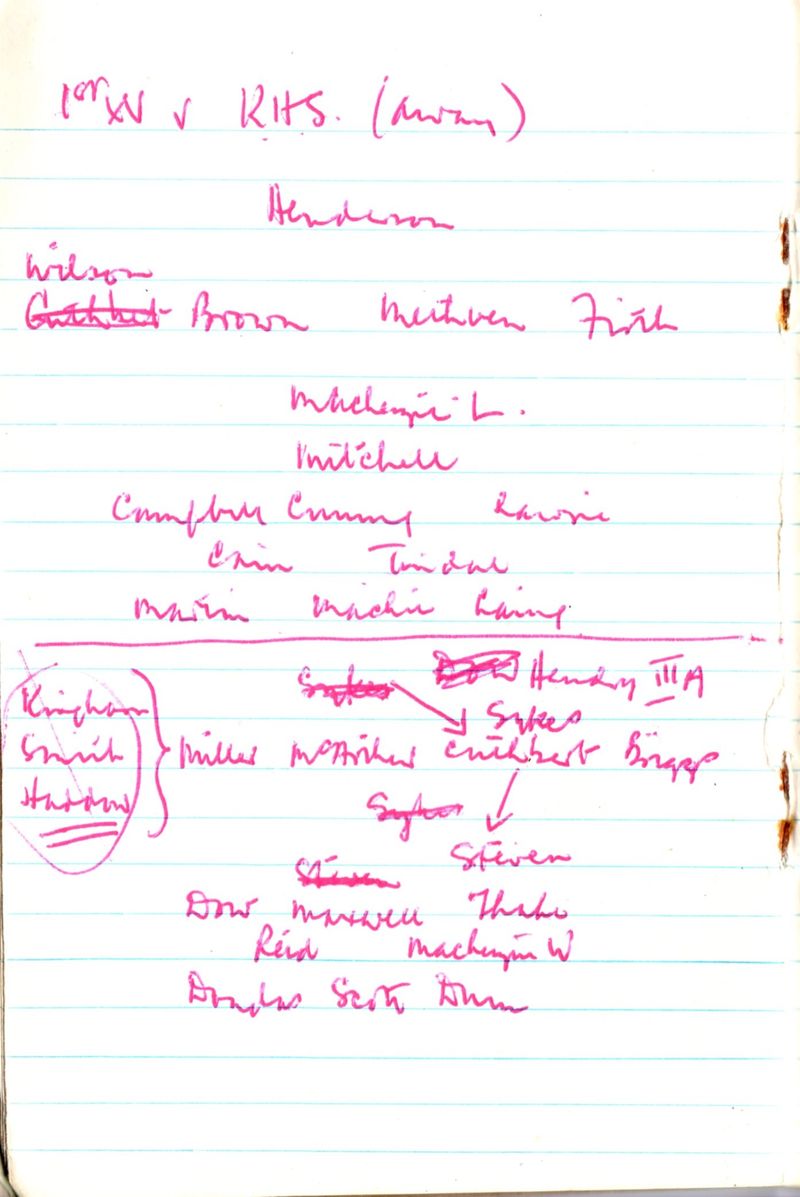 1st XV v R.H.S. (away)
Henderson
Wilson
Cuthbert Brown Methven Firth
Mackenzie L.
Mitchell
Campbell Cumming Lawrie
Cain Tindal
Martin Mackie Laing
Sykes Dow Hendry III A
Kingham Sykes
Smith Miller McArthur Cuthbert Briggs
Haddow Sykes
Steven
Steven
Dow Maxwell
Reid Mackenzie W
Douglas Scott Dunn